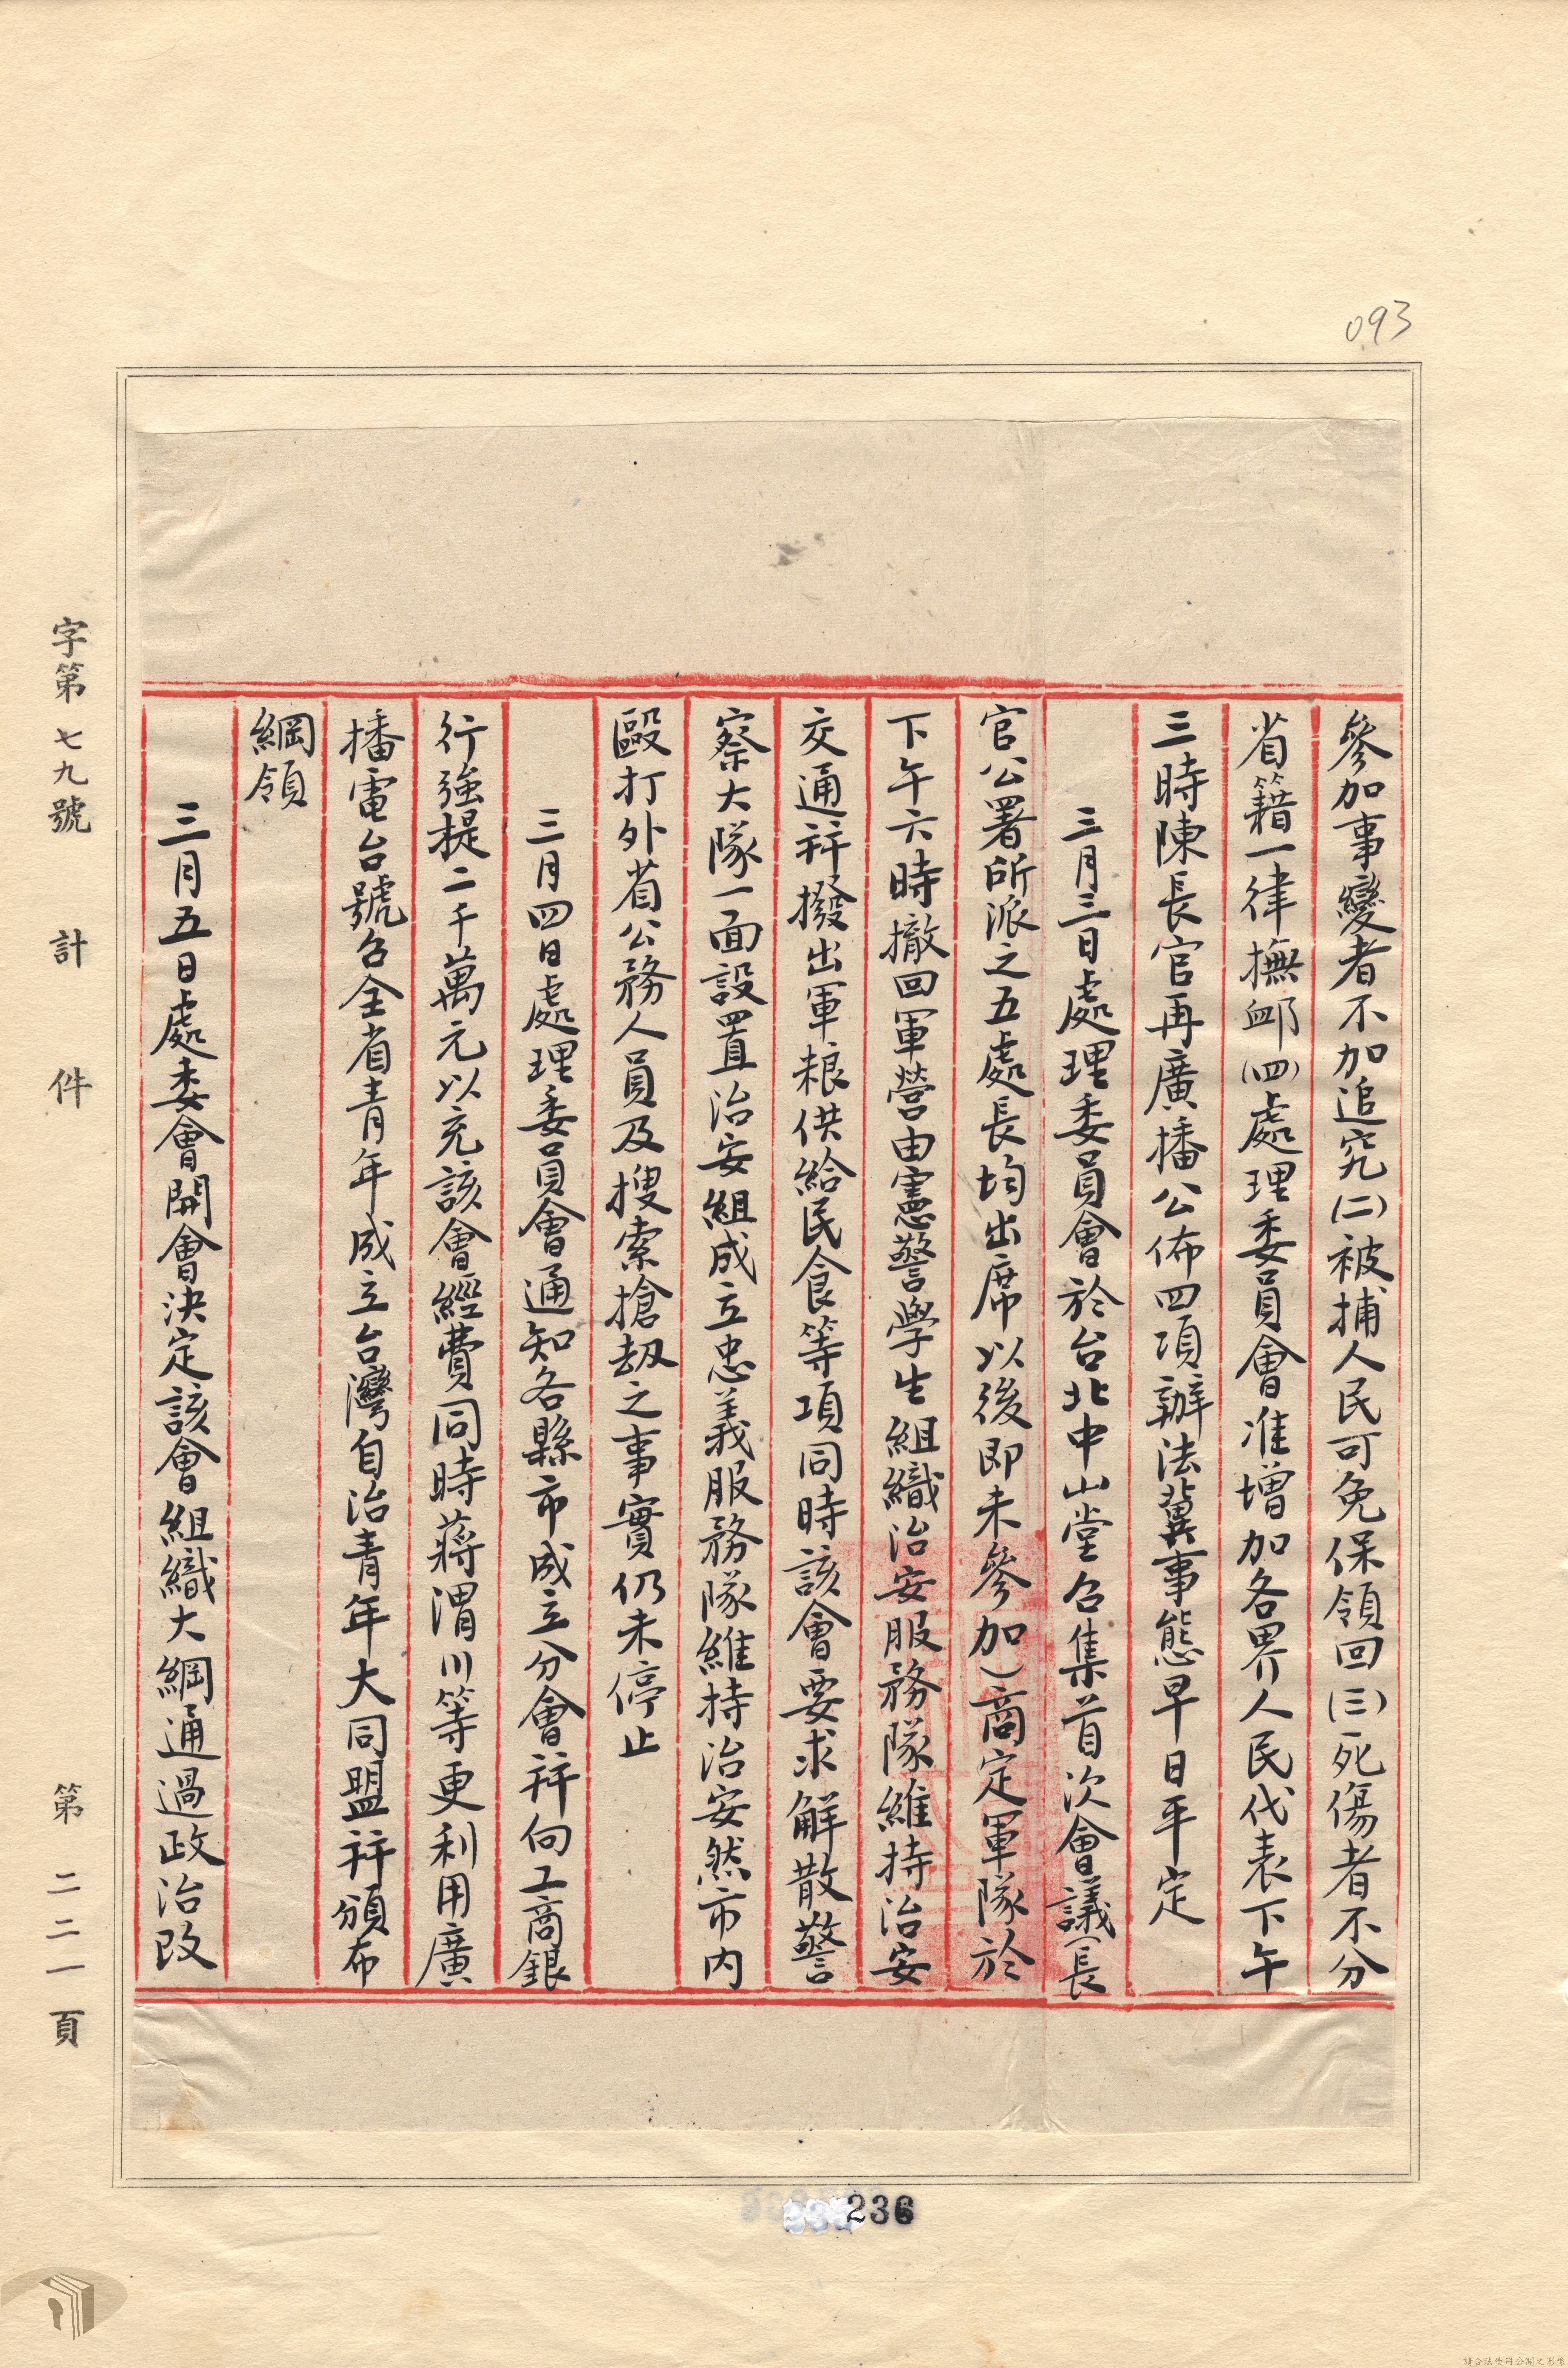 093
參加事變者不加追究(二)被捕人民可免保領回(三)死傷者不分
省籍一律撫卹(四)處理委員會准增加各界人民代表下午
三時陳長官再廣播公佈四項辦法冀事態早日平定
三月三日處理委員會於台北中山堂召集首次會議(長
官公署所派之五處長均出席以後即未參加)商定軍隊於
下午六時撤回軍營由憲警學生組織治安服務隊維持治安
交通並撥出軍粮供給民食等項同時該會要求解散警
察大隊一面設置治安組成立忠義服務隊維持治安然市内
毆打外省公務人員及搜索搶劫之事實仍未停止
三月四日處理委員會通知各縣市成立分會並向工商銀
行強提二千萬元以充該會經費同時蔣渭川等更利用廣
播電台號召全省青年成立台灣自治青年大同盟並頒布
綱領
三月五日處委會開會決定該會組織大綱通過政治改
字第七九號 計 件 第二二一頁
236
請合法使用公開之影像